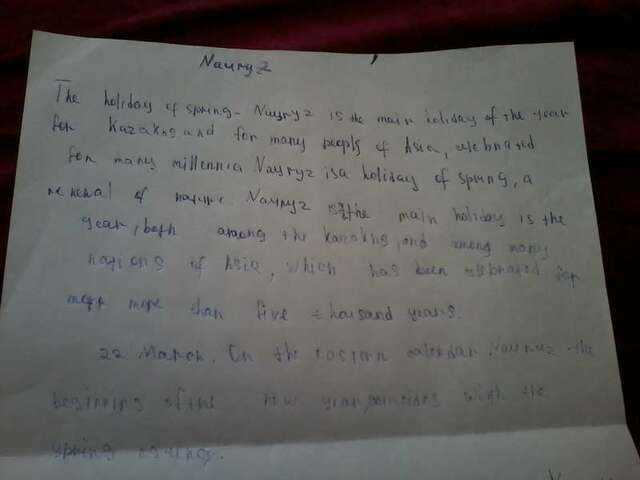 Nauryz
The holiday of spring - Nauryz is the main holiday of the year
for Kazakhs and for many people of Asia, celebrated
for many millennia Nauryz is a holiday of spring, a
renewal of nature Nauryz is the main holiday is the
year, both among the Kazakhs, and among many
nations of Asia, which has been celebrated for
more than five thousand years.
22 March. In the eastern calendar Nauruz the
beginning of the new year, coincides with the
spring